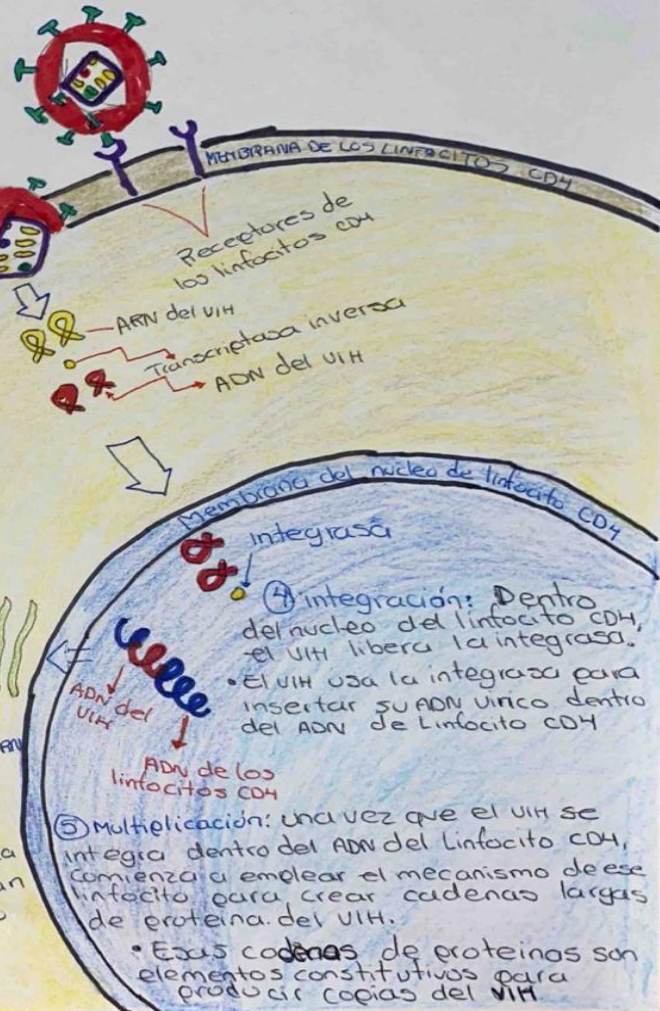 MEMBRANA DE LOS LINFOCITOS CD4
Receptores de
los linfocitos CD4
ARN del VIH
Transcriptasa inversa
ADN del VIH
Membrana del nucleo de linfocito CD4
integrasa
④ integración: Dentro
del nucleo del linfocito CD4,
el VIH libera la integrasa.
• El VIH usa la integrasa para
insertar su ADN Vírico dentro
del ADN de Linfocito CD4
ADN del
VIH
ADN de los
linfocitos CD4
⑤ Multiplicación: una vez que el VIH se
integra dentro del ADN del Linfocito CD4,
comienza a emplear el mecanismo de ese
linfocito para crear cadenas largas
de proteina. del VIH.
• Esas cadenas de proteinas son
elementos constitutivos para
producir copias del VIH